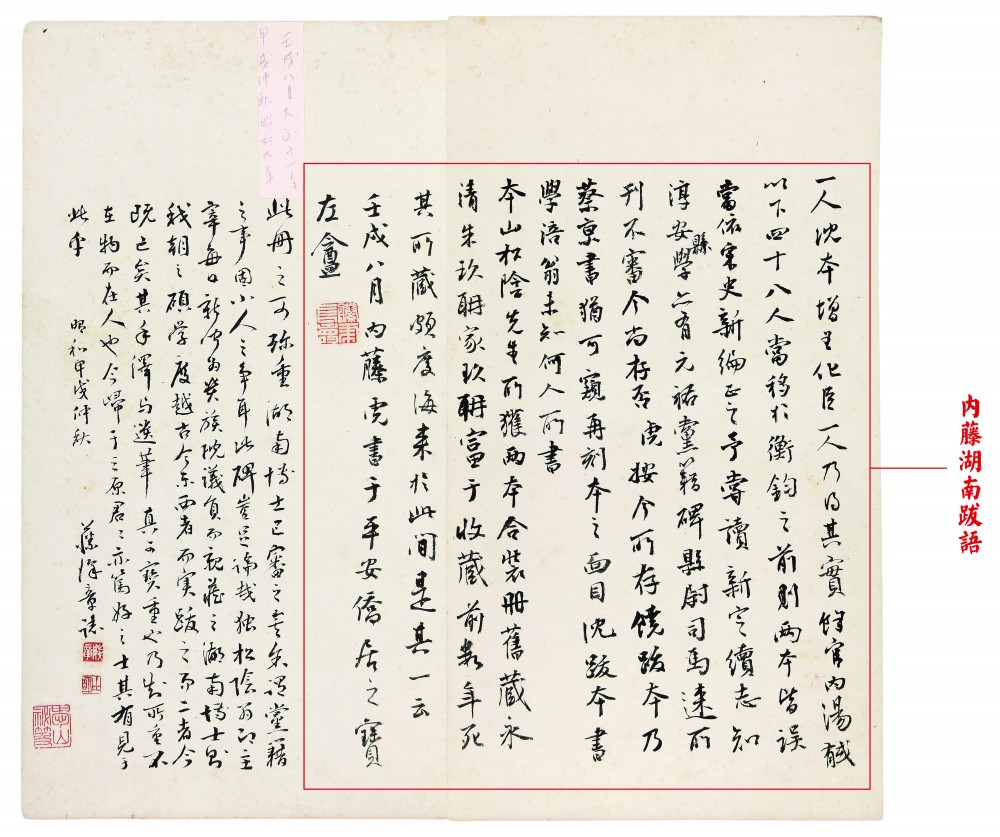 一人沈本增王化臣一人乃得其實餘官內湯馘
以下四十八人當移於衡鈞之前則兩本皆誤
當依宋史新編正之予嘗讀新定續志知
淳安縣學亦有元祐黨籍碑縣尉司馬逵所
刊不審今尚存否虎按今所存饒跋本乃
蔡京書猶可窺再刻本之面目沈跋本書
學涪翁未知何人所書
本山松陰先生所獲兩本合裝冊舊藏永
清朱玖聃家玖聃富于收藏前數年死
其所藏頗度海來於此間是其一云
壬戌八月內藤虎書于平安僑居之寶
左盦
此冊之可珍重湖南博士已審之矣
之事固小人之爭耳此碑豈足論哉独松陰翁即主
宰每日新聞
我朝之碩学度越古今東西者而実跋之而二者今
既亡矣其手澤与遺筆真可寶重也乃知所重不
在物而在人也今帰于三原君君亦篤好之士其有見于
此乎
昭和甲戌仲秋
壬戌八月大正十一年
甲戌仲秋昭和九年
內藤湖南跋語